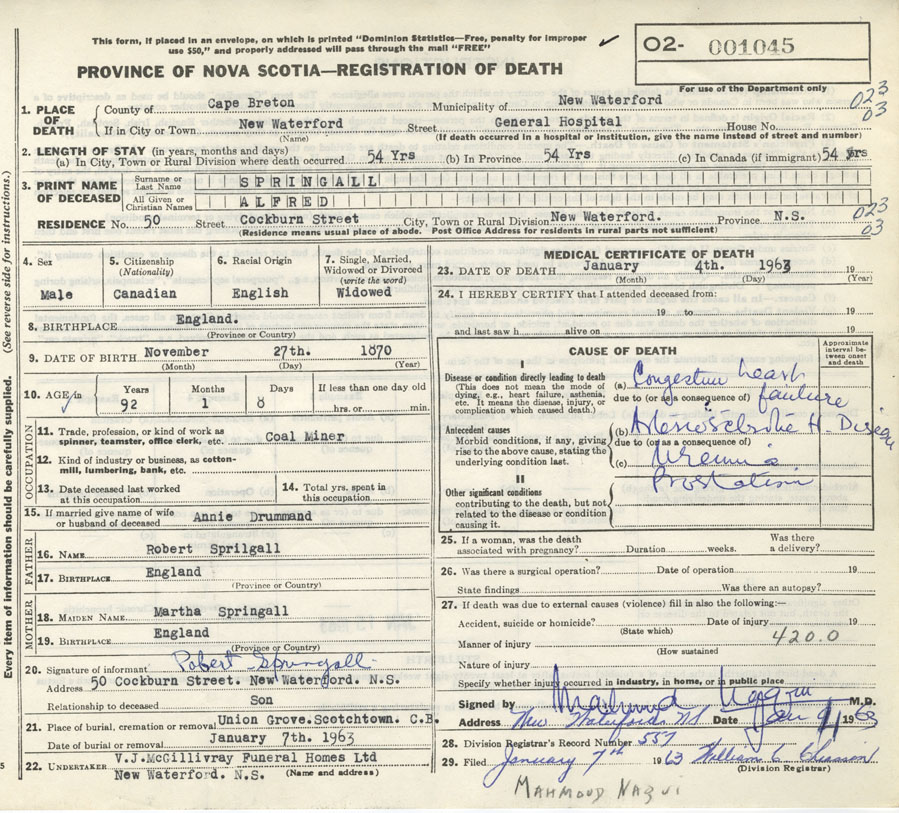 This form, if placed in an envelope, on which is printed "Dominion Statistics—Free, penalty for improper
use $50," and properly addressed will pass through the mail "FREE"
✓
O2- 001045
For use of the Department only
PROVINCE OF NOVA SCOTIA—REGISTRATION OF DEATH
1. PLACE OF DEATH { County of Cape Breton Municipality of New Waterford 023
If in City or Town New Waterford Street General Hospital House No. 03
(Name) (If death occurred in a hospital or institution, give the name instead of street and number)
2. LENGTH OF STAY (in years, months and days)
(a) In City, Town or Rural Division where death occurred 54 Yrs (b) In Province 54 Yrs (c) In Canada (if immigrant) 54 Yrs
3. PRINT NAME OF DECEASED
Surname or Last Name SPRINGALL
All Given or Christian Names ALFRED
RESIDENCE No. 50 Street Cockburn Street City, Town or Rural Division New Waterford. Province N.S. 023
(Residence means usual place of abode. Post Office Address for residents in rural parts not sufficient) 03
4. Sex Male
5. Citizenship (Nationality) Canadian
6. Racial Origin English
7. Single, Married, Widowed or Divorced (write the word) Widowed
8. BIRTHPLACE England.
(Province or Country)
9. DATE OF BIRTH November 27th. 1870
(Month) (Day) (Year)
10. AGE in Years 92 Months 1 Days 8 If less than one day old hrs. or min.
OCCUPATION
11. Trade, profession, or kind of work as spinner, teamster, office clerk, etc. Coal Miner
12. Kind of industry or business, as cotton-mill, lumbering, bank, etc.
13. Date deceased last worked at this occupation
14. Total yrs. spent in this occupation
15. If married give name of wife or husband of deceased Annie Drummand
FATHER
16. NAME Robert Sprilgall
17. BIRTHPLACE England
(Province or Country)
MOTHER
18. MAIDEN NAME Martha Springall
19. BIRTHPLACE England
(Province or Country)
20. Signature of informant Robert Springall
Address 50 Cockburn Street. New Waterford. N.S.
Relationship to deceased Son
21. Place of burial, cremation or removal Union Grove.Scotchtown. C.B.
Date of burial or removal January 7th. 1963
22. UNDERTAKER V.J.McGillivray Funeral Homes Ltd
New Waterford. N.S. (Name and address)
MEDICAL CERTIFICATE OF DEATH
23. DATE OF DEATH January 4th. 1963 19
(Month) (Day) (Year)
24. I HEREBY CERTIFY that I attended deceased from:
19 to 19
and last saw h alive on 19
CAUSE OF DEATH
Approximate interval between onset and death
I
Disease or condition directly leading to death
(This does not mean the mode of dying, e.g., heart failure, asthenia, etc. It means the disease, injury, or complication which caused death.)
(a) Congestive heart
due to (or as a consequence of) failure
Antecedent causes
Morbid conditions, if any, giving rise to the above cause, stating the underlying condition last.
(b) Arteriosclerotic H. Disease
due to (or as a consequence of)
(c) Uremia
II
Other significant conditions contributing to the death, but not related to the disease or condition causing it.
25. If a woman, was the death associated with pregnancy? Duration weeks. Was there a delivery?
26. Was there a surgical operation? Date of operation 19
State findings Was there an autopsy?
27. If death was due to external causes (violence) fill in also the following:—
Accident, suicide or homicide? Date of injury 19
(State which)
Manner of injury 420.0
(How sustained)
Nature of injury
Specify whether injury occurred in industry, in home, or in public place
Signed by Mahmud Naqvi M.D.
Address New Waterford NS Date Jan 1963
28. Division Registrar's Record Number 557
29. Filed January 7th 1963 William C Chiasson
(Division Registrar)
MAHMOUD NAQVI
Every item of information should be carefully supplied. (See reverse side for instructions.)
5